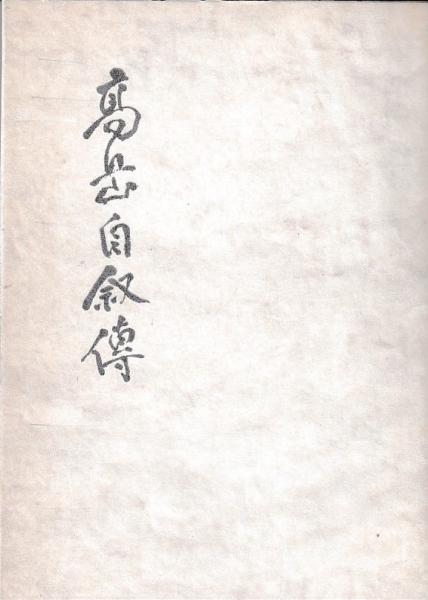 高岳自叙傳